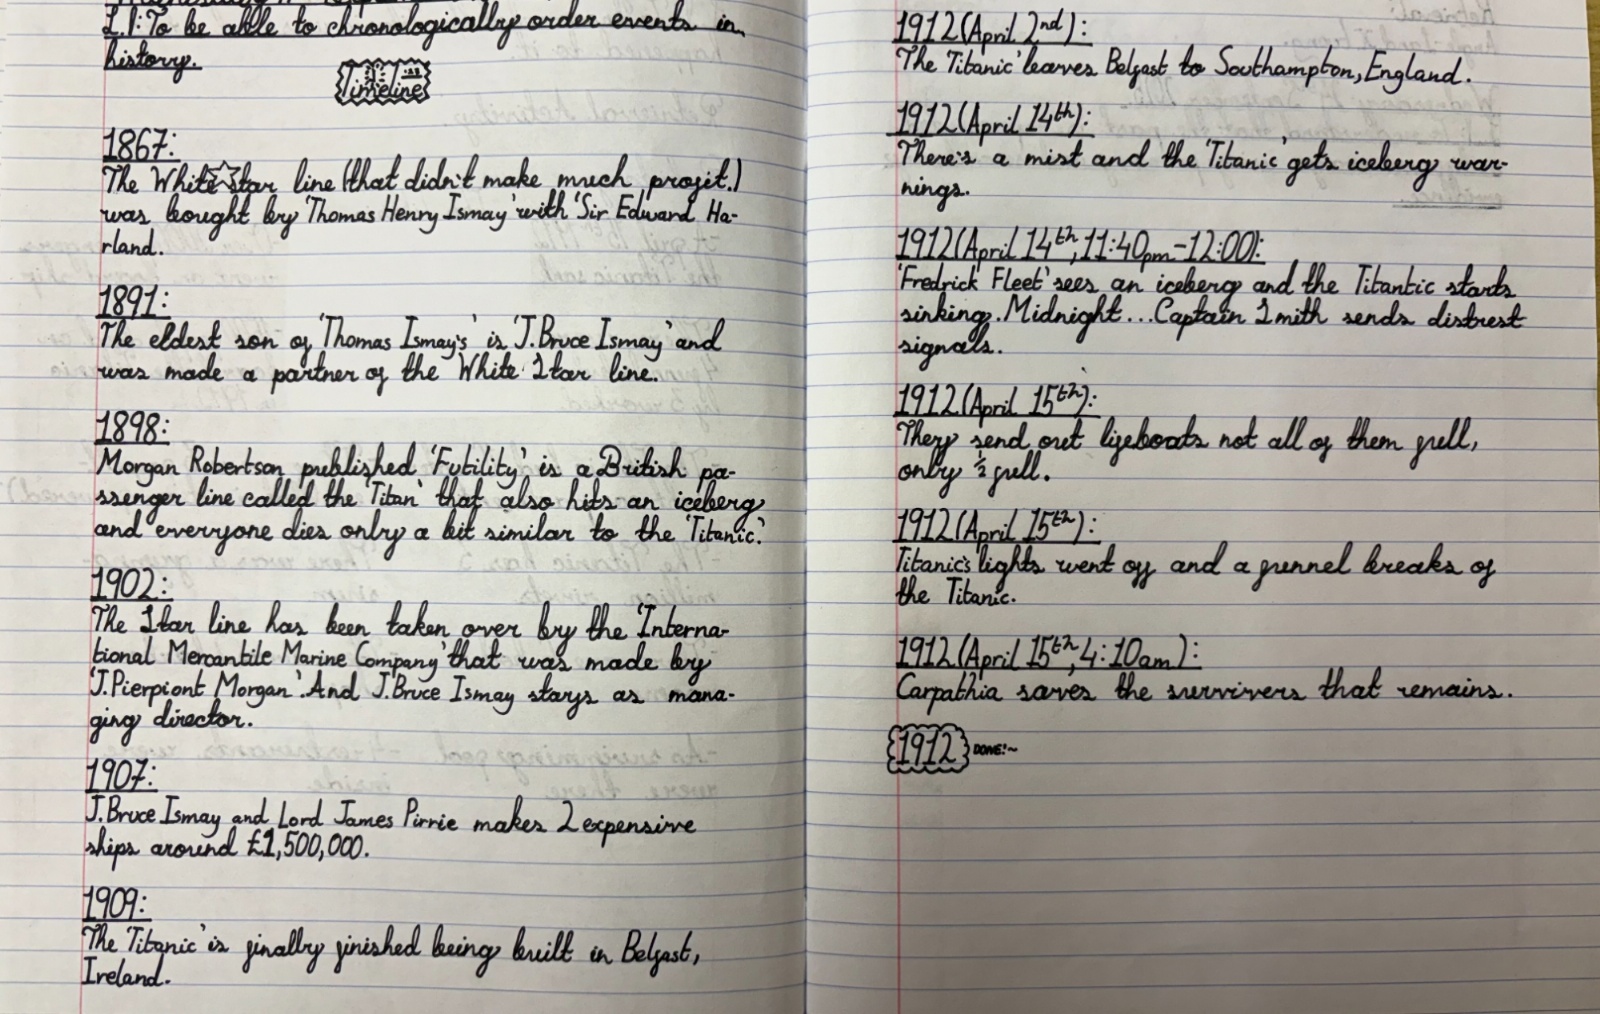 L.I: To be able to chronologically order events in
history.
Timeline
1867:
The White Star line (that didn't make much profit.)
was bought by 'Thomas Henry Ismay' with 'Sir Edward Ha-
rland.
1891:
The eldest son of 'Thomas Ismay's' is 'J.Bruce Ismay' and
was made a partner of the White Star line.
1898:
Morgan Robertson published 'Futility' is a British pa-
ssenger line called the 'Titan' that also hits an iceberg
and everyone dies only a bit similar to the 'Titanic'.
1902:
The Star line has been taken over by the 'Interna-
tional Mercantile Marine Company' that was made by
'J.Pierpiont Morgan'. And J.Bruce Ismay stays as mana-
ging director.
1907:
J.Bruce Ismay and Lord James Pirrie makes 2 expensive
ships around £1,500,000.
1909:
The 'Titanic' is finally finished being built in Belfast,
Ireland.
1912(April 2nd):
The 'Titanic' leaves Belfast to Southampton, England.
1912(April 14th):
There's a mist and the 'Titanic' gets iceberg war-
nings.
1912(April 14th, 11:40pm-12:00):
'Fredrick Fleet' sees an iceberg and the Titantic starts
sinking. Midnight... Captain Smith sends distrest
signals.
1912(April 15th):
They send out lifeboats not all of them full,
only ½ full.
1912(April 15th):
Titanic's lights went off and a funnel breaks of
the Titanic.
1912(April 15th, 4:10am):
Carpathia saves the survivers that remains.
1912 DONE!~